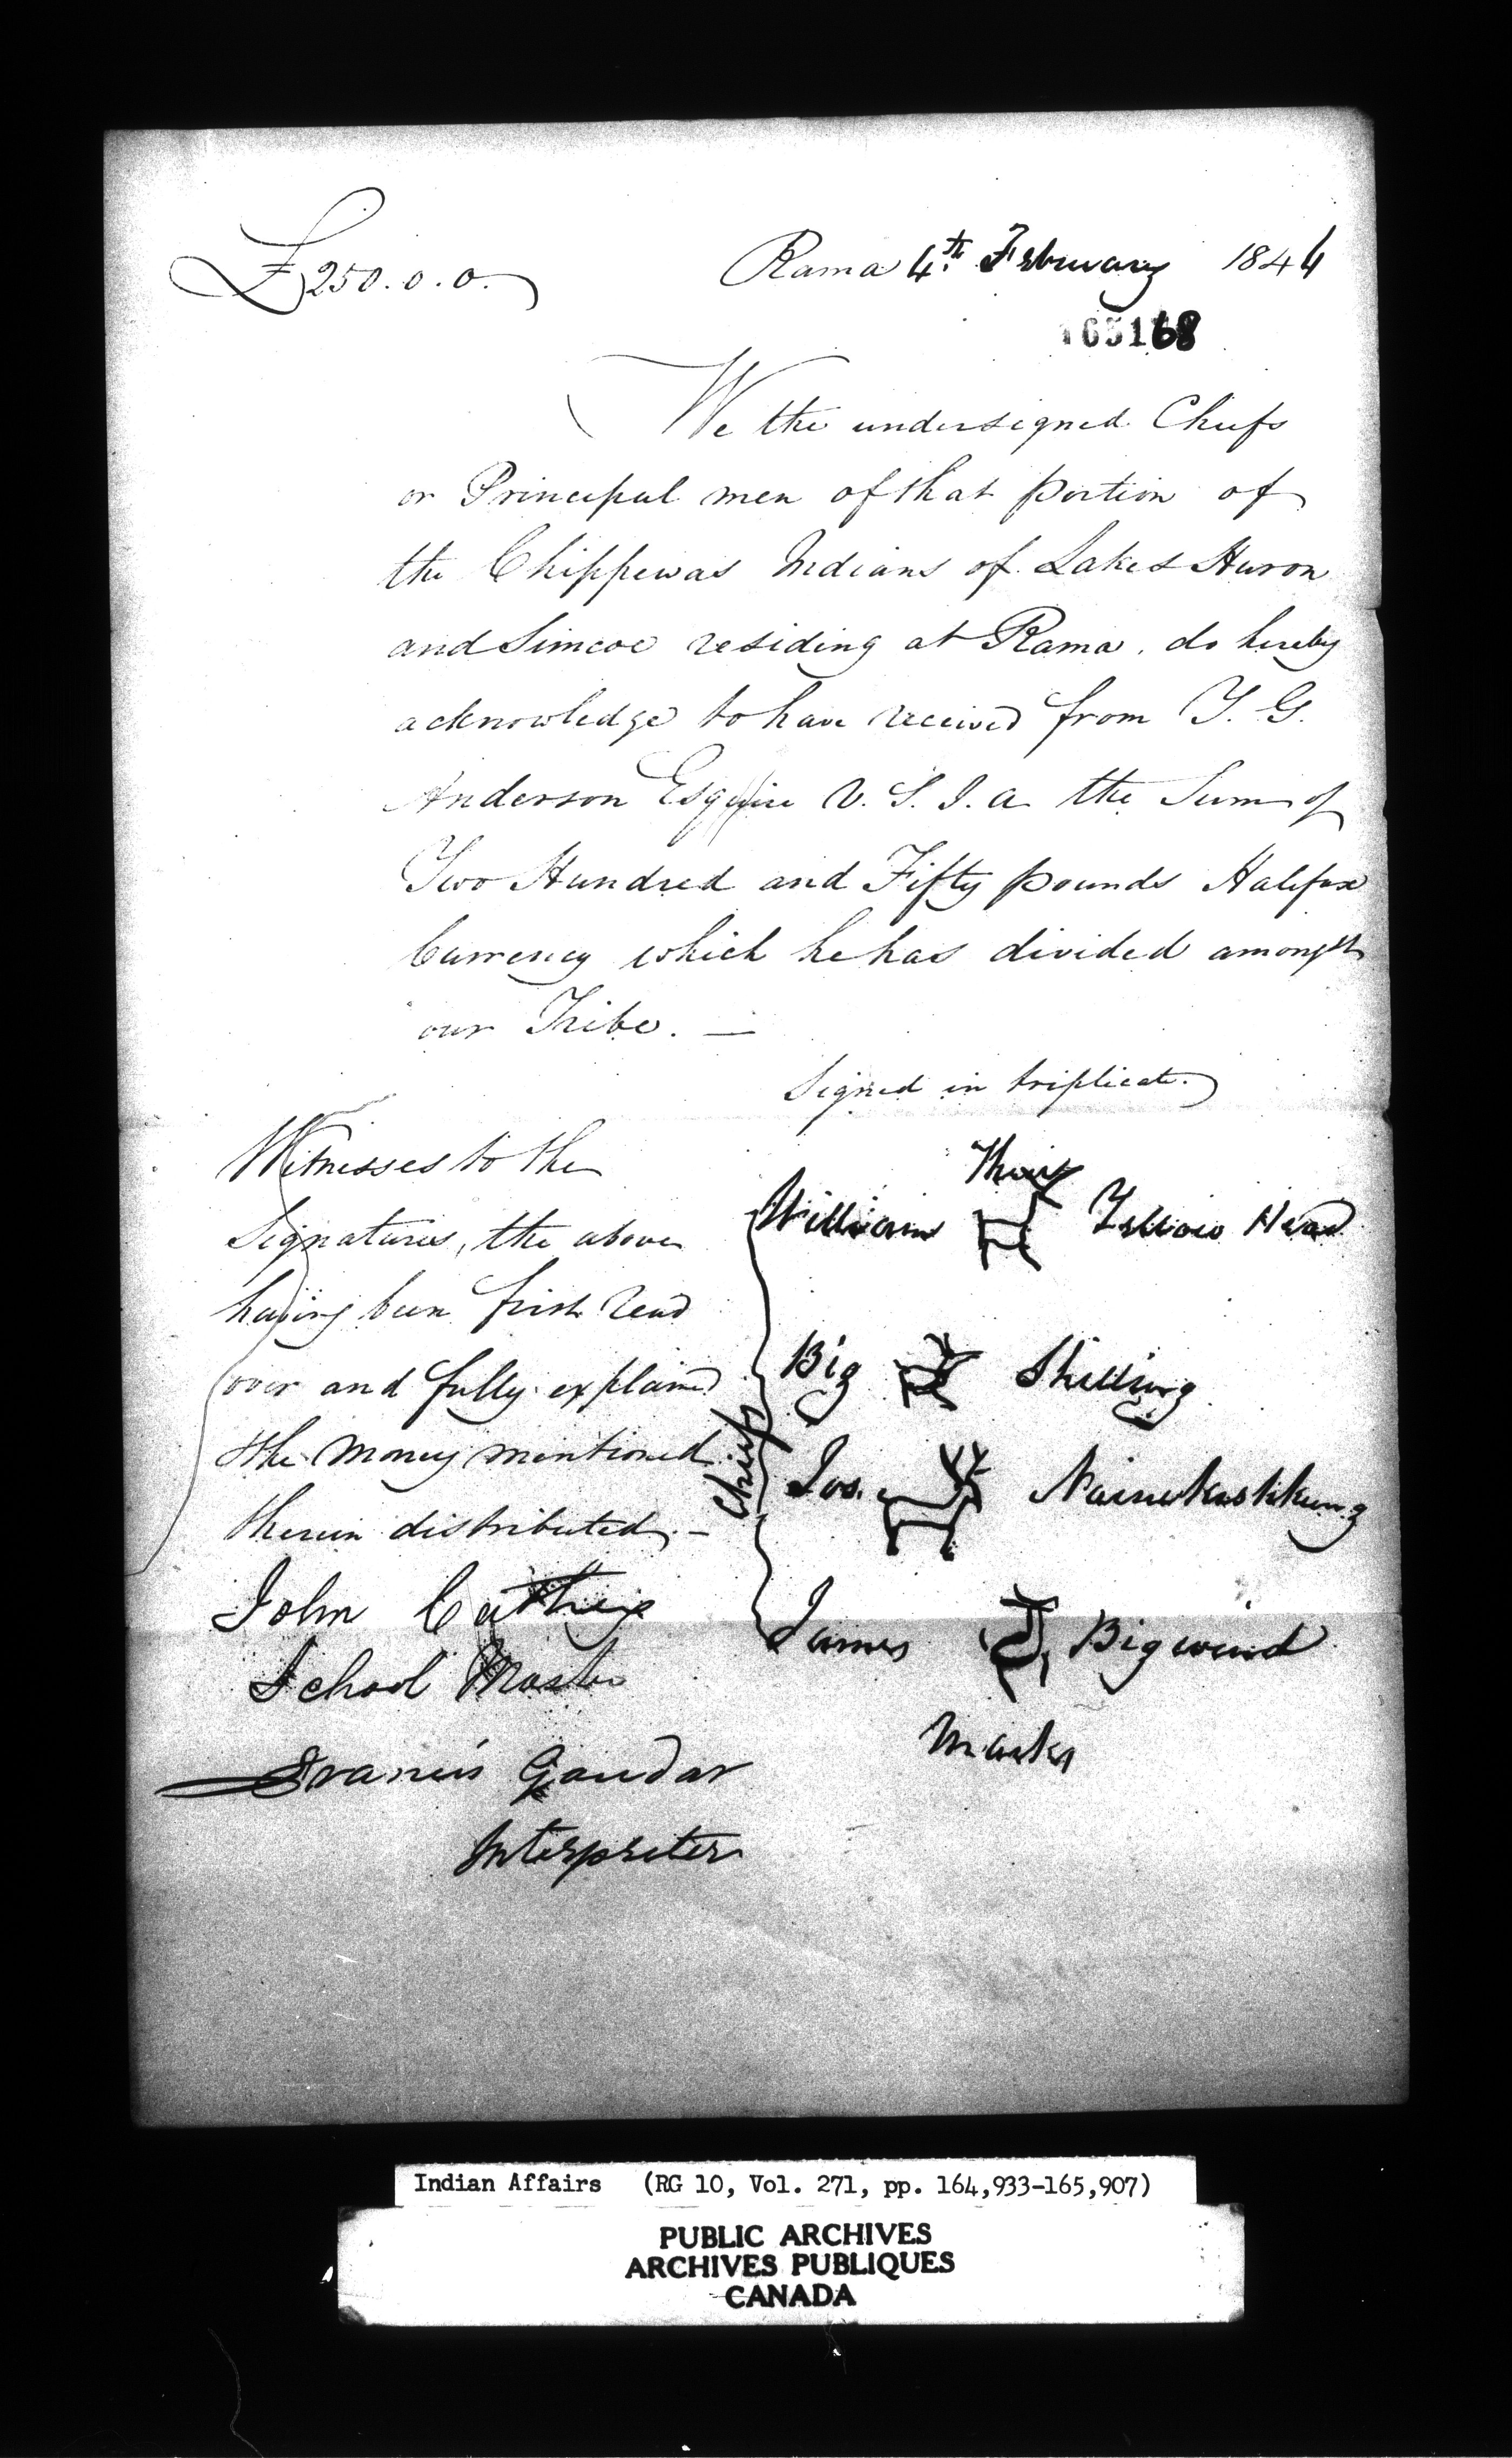 £250.0.0.
Rama 4th February 1844
165168
We the undersigned Chiefs
or Principal men of that portion of
the Chippewas Indians of Lakes Huron
and Simcoe residing at Rama, do hereby
acknowledge to have received from T. G.
Anderson Esquire V. S. I. A the Sum of
Two Hundred and Fifty pounds Halifax
Currency which he has divided amongst
our Tribe. —
Signed in triplicate.
Witnesses to the
Signatures, the above
having been first read
over and fully explained
& the money mentioned
therein distributed. —
John
School Master
Francis Gaudar
Interpreter
Chiefs
Their
William Yellow Head
Big Shilling
Jos.
James Bigwind
Marks
Indian Affairs (RG 10, Vol. 271, pp. 164,933-165,907)
PUBLIC ARCHIVES
ARCHIVES PUBLIQUES
CANADA